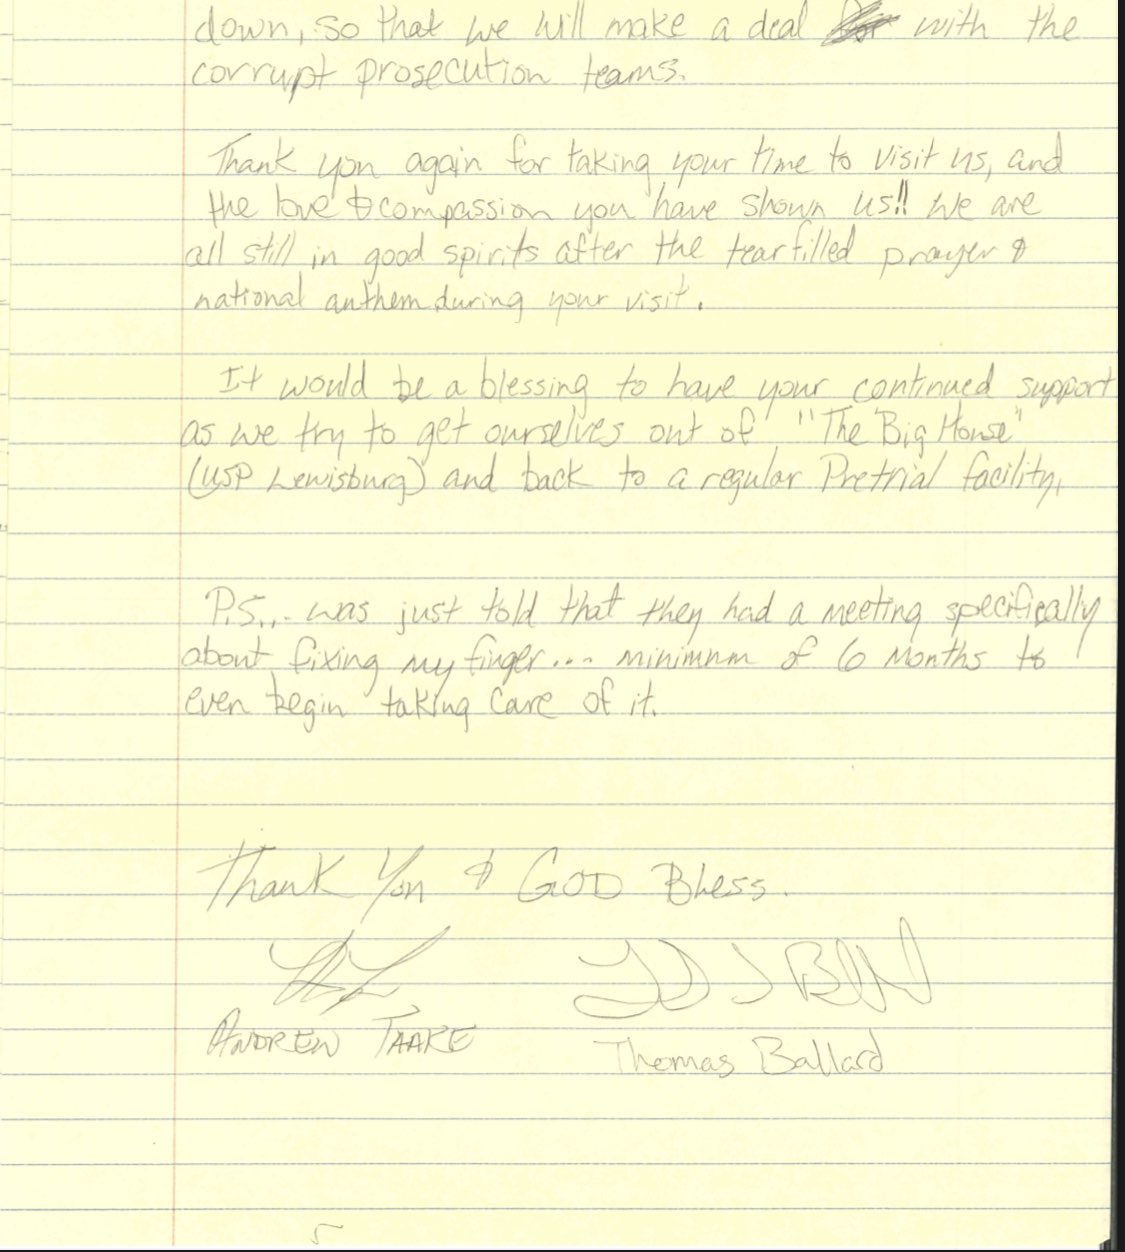 down, so that we will make a deal with the
corrupt prosecution teams.
Thank you again for taking your time to visit us, and
the love & compassion you have shown us!! We are
all still in good spirits after the tearfilled prayer &
national anthem during your visit.
It would be a blessing to have your continued support
as we try to get ourselves out of "The Big House"
(USP Lewisburg) and back to a regular Pretrial facility.
P.S... was just told that they had a meeting specifically
about fixing my finger... minimum of 6 Months to
even begin taking care of it.
Thank You & GOD Bless.
ANDREW TAAKE Thomas Ballard
5